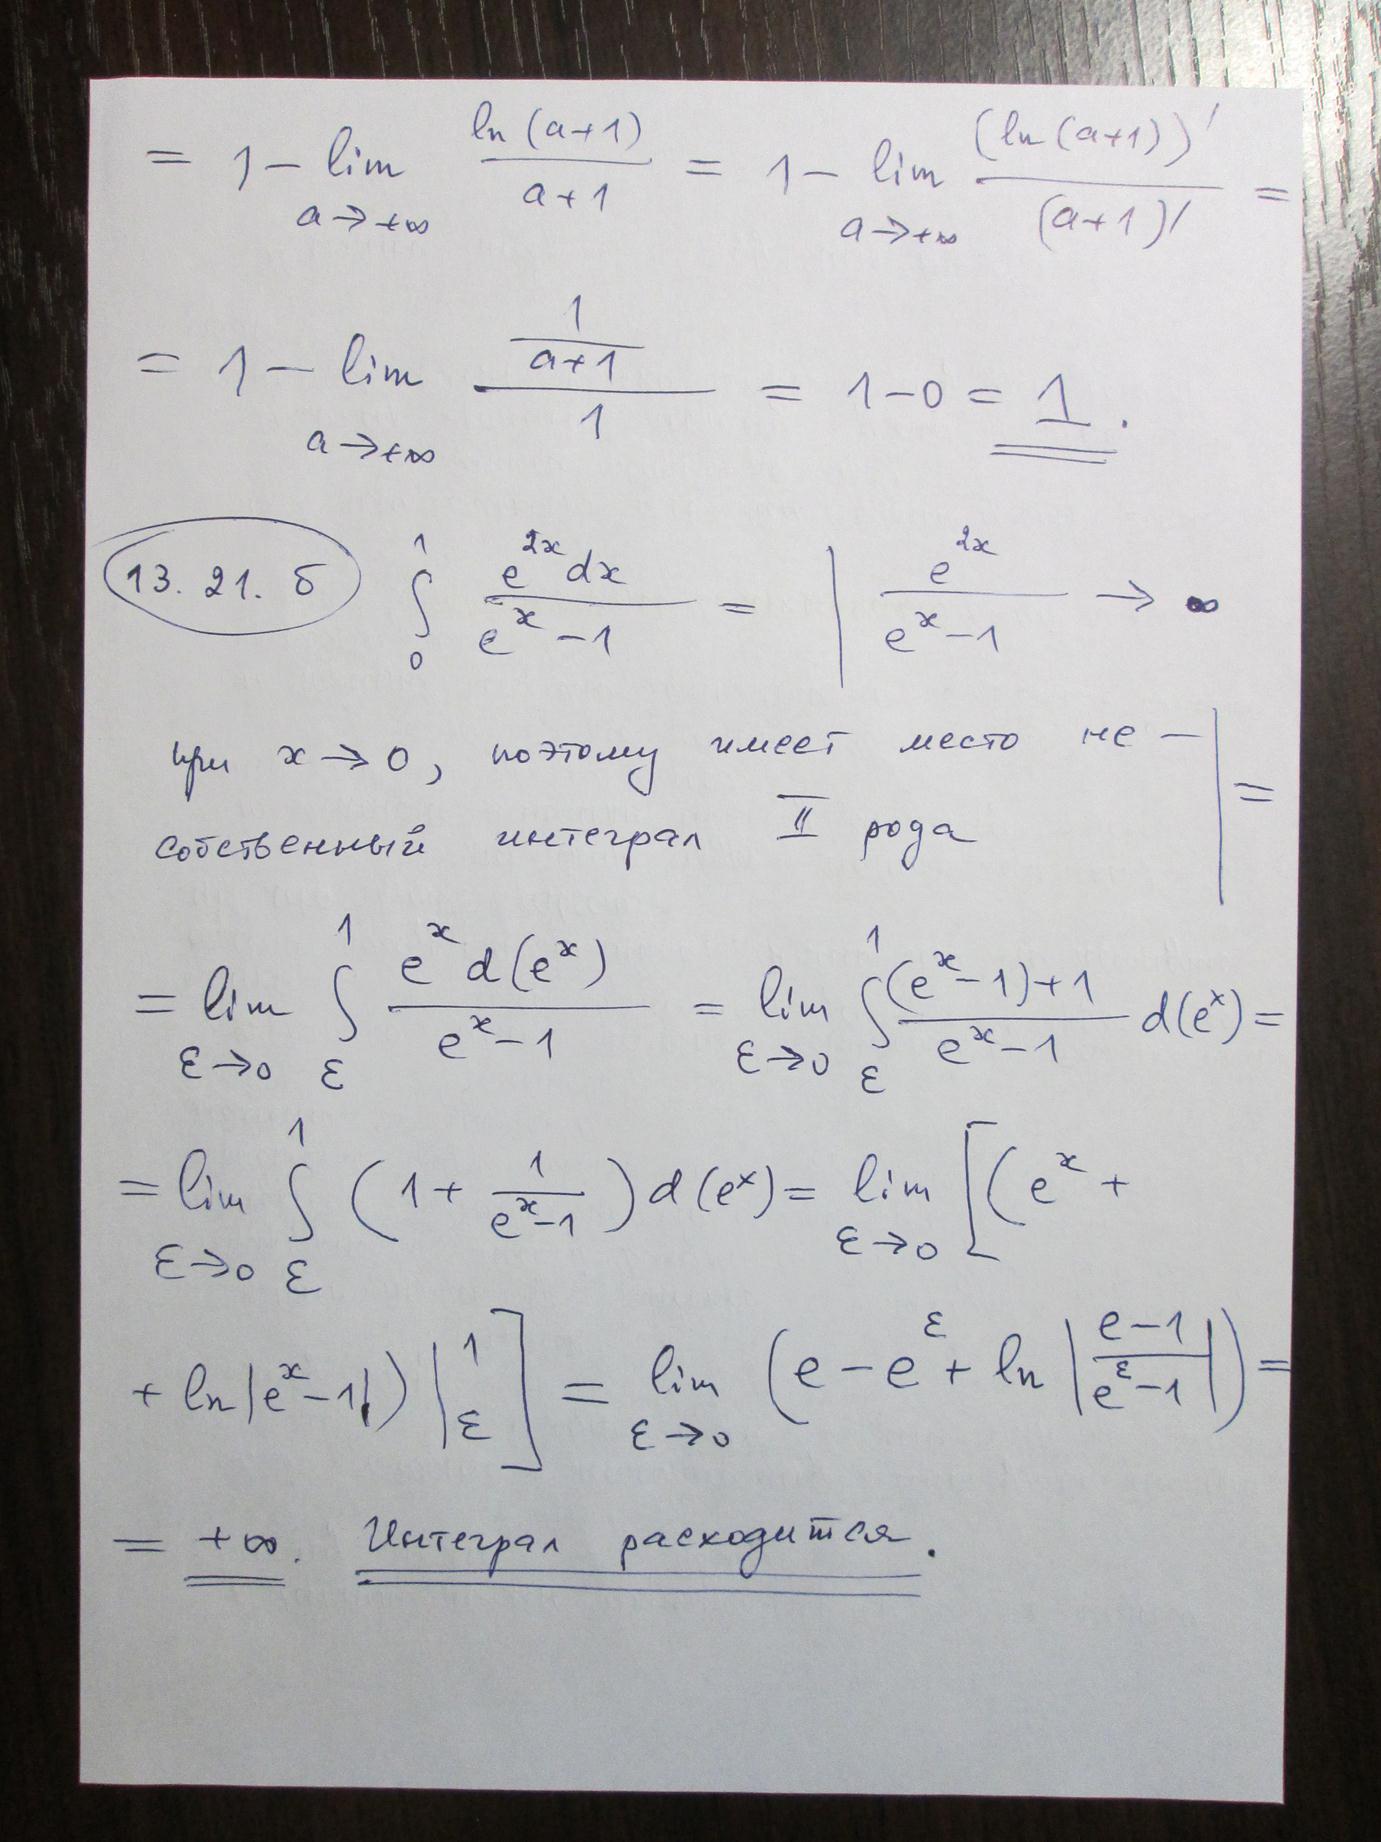 = 1 - lim_{a→+∞} \frac{ln(a+1)}{a+1} = 1 - lim_{a→+∞} \frac{(ln(a+1))'}{(a+1)'} =
= 1 - lim_{a→+∞} \frac{\frac{1}{a+1}}{1} = 1 - 0 = 1.
13.21.б ∫_0^1 \frac{e^{2x} dx}{e^x - 1} = | \frac{e^{2x}}{e^x - 1} → ∞
при x → 0, поэтому имеет место не-
собственный интеграл II рода | =
= lim_{ε→0} ∫_ε^1 \frac{e^x d(e^x)}{e^x - 1} = lim_{ε→0} ∫_ε^1 \frac{(e^x - 1) + 1}{e^x - 1} d(e^x) =
= lim_{ε→0} ∫_ε^1 (1 + \frac{1}{e^x - 1}) d(e^x) = lim_{ε→0} [(e^x +
+ ln|e^x - 1|) |_ε^1] = lim_{ε→0} (e - e^ε + ln|\frac{e - 1}{e^ε - 1}|) =
= +∞. Интеграл расходится.